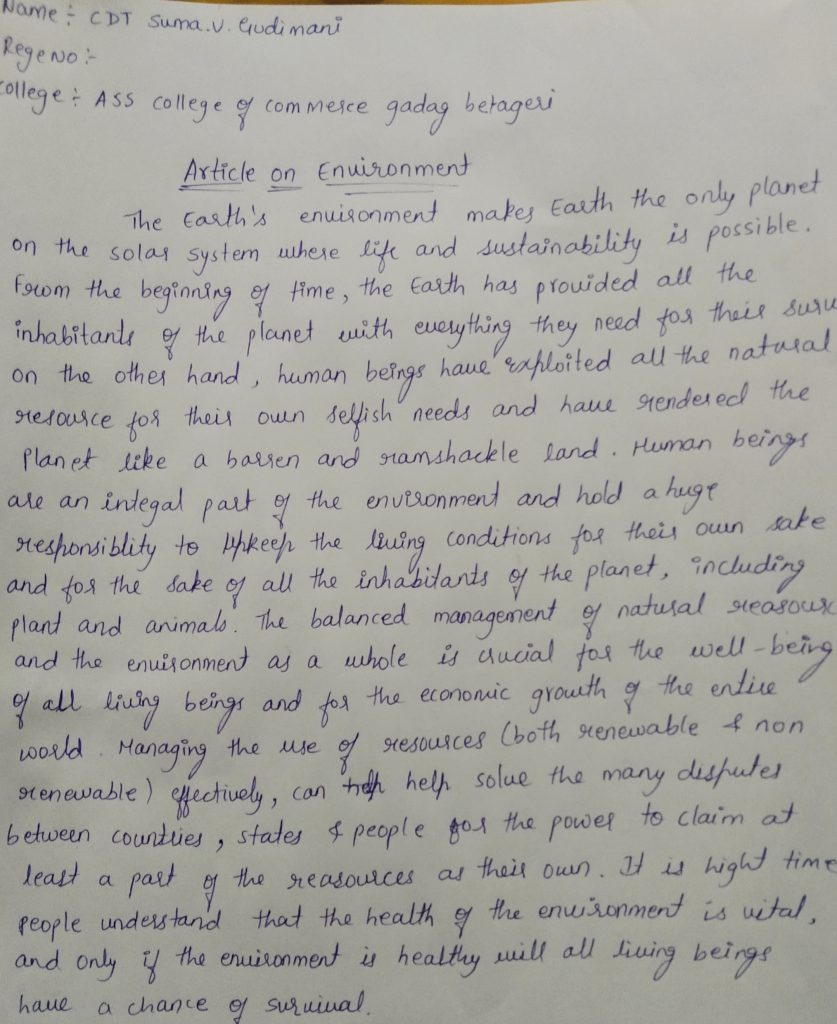 Name :- CDT Suma.V. Gudimani
Rege No :-
College :- ASS college of commerce gadag betageri
Article on Environment
The Earth's environment makes Earth the only planet
on the solar system where life and sustainability is possible.
From the beginning of time, the Earth has provided all the
inhabitants of the planet with everything they need for their surv
on the other hand, human beings have exploited all the natural
resource for their own selfish needs and have rendered the
Planet like a barren and ramshackle land. Human beings
are an integal part of the environment and hold a huge
responsiblity to Upkeep the living conditions for their own sake
and for the sake of all the inhabitants of the planet, including
plant and animals. The balanced management of natural reasourc
and the environment as a whole is crucial for the well-being
of all living beings and for the economic growth of the entire
world. Managing the use of resources (both renewable & non
renewable) effectively, can help solve the many disputes
between countries, states & people for the power to claim at
least a part of the reasources as their own. It is hight time
people understand that the health of the environment is vital,
and only if the environment is healthy will all living beings
have a chance of survival.